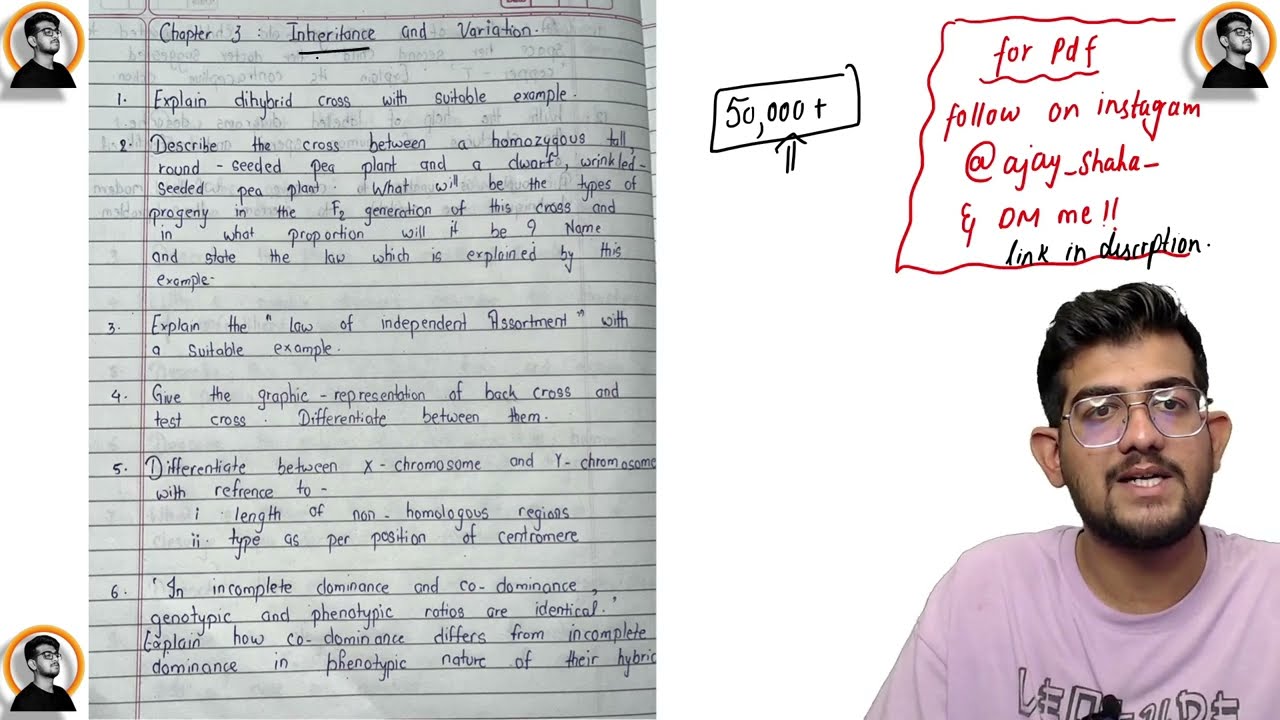 Chapter 3 : Inheritance and Variation.
1. Explain dihybrid cross with suitable example.
2. Describe the cross between a homozygous tall,
round - seeded pea plant and a dwarf, wrinkled-
seeded pea plant. What will be the types of
progeny in the F2 generation of this cross and
in what proportion will it be ? Name
and state the law which is explained by this
example-
3. Explain the "law of independent Assortment" with
a suitable example.
4. Give the graphic - representation of back cross and
test cross. Differentiate between them.
5. Differentiate between X - chromosome and Y - chromosome
with refrence to -
i. length of non - homologous regions
ii. type as per position of centromere
6. 'In incomplete dominance and co-dominance,
genotypic and phenotypic ratios are identical.'
Explain how co-dominance differs from incomplete
dominance in phenotypic nature of their hybrid
50,000+
for Pdf
follow on instagam
@ajay_shaha_
& DM me!!
link in discrption.